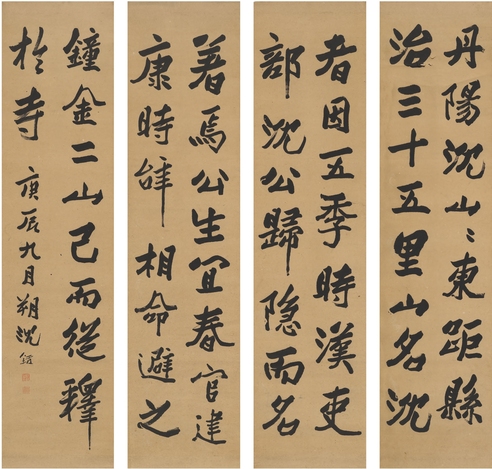 丹陽沈山〻東距縣
治三十五里山名沈
者因五季時漢吏
部沈公歸隐而名
著焉公生宜春官建
康時辞相命避之
鐘金二山已而從釋
於寺
庚辰九月朔沈